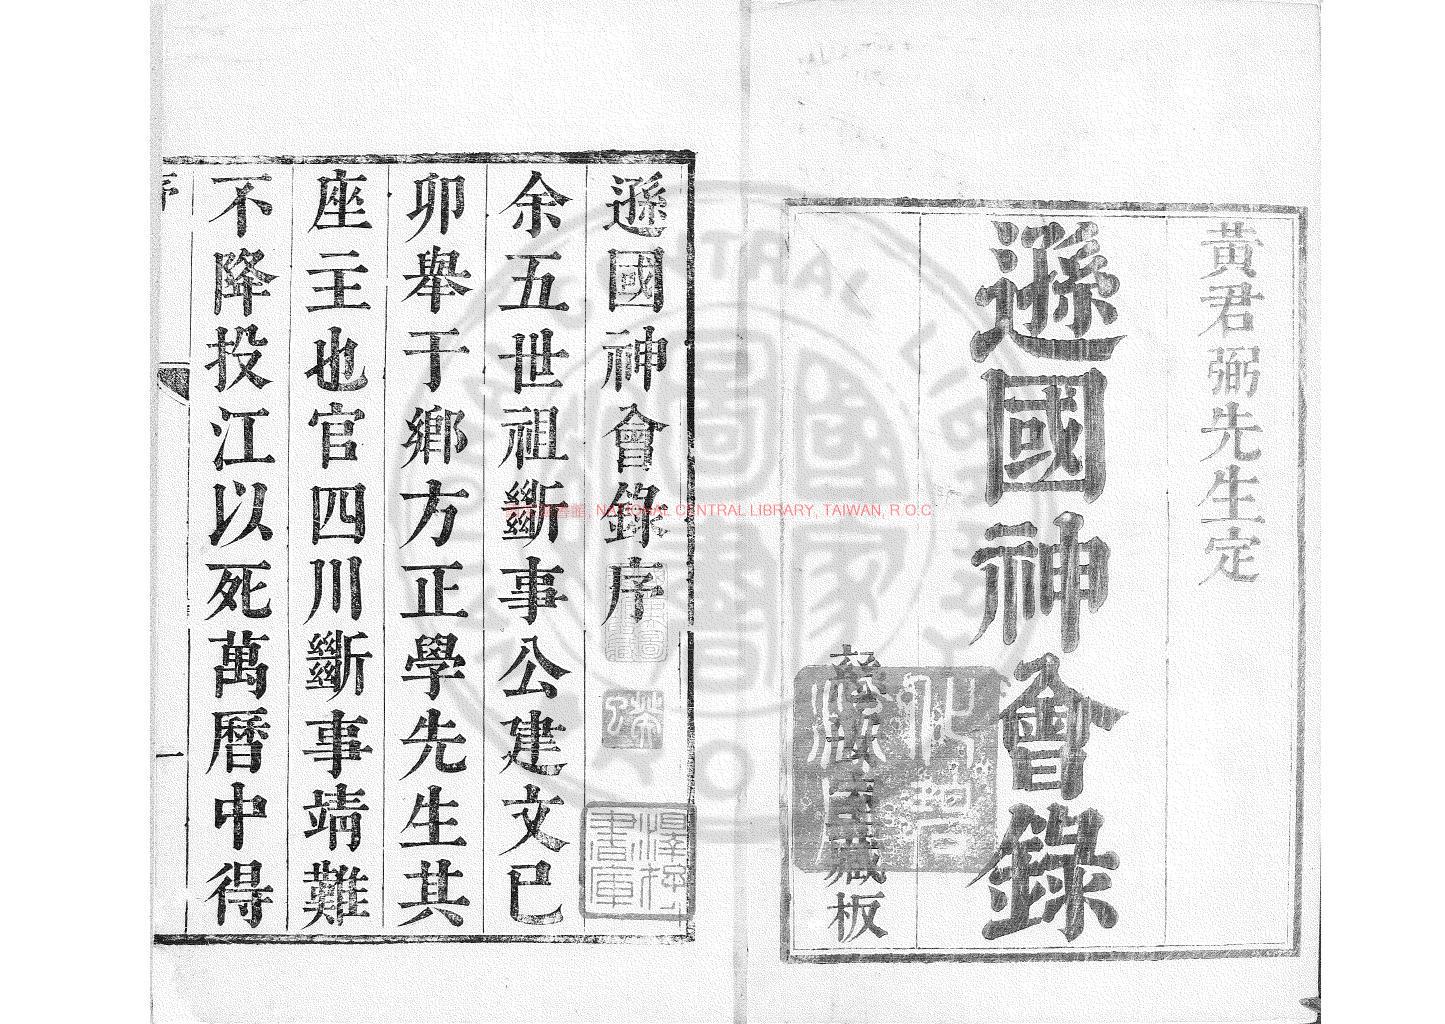 黃君弼先生定
遜國神會錄
藏板
遜國神會錄序
余五世祖斷事公建文已
卯舉于鄉方正學先生其
座主也官四川斷事靖難
不降投江以死萬曆中得
序
一
NATIONAL CENTRAL LIBRARY, TAIWAN, R.O.C